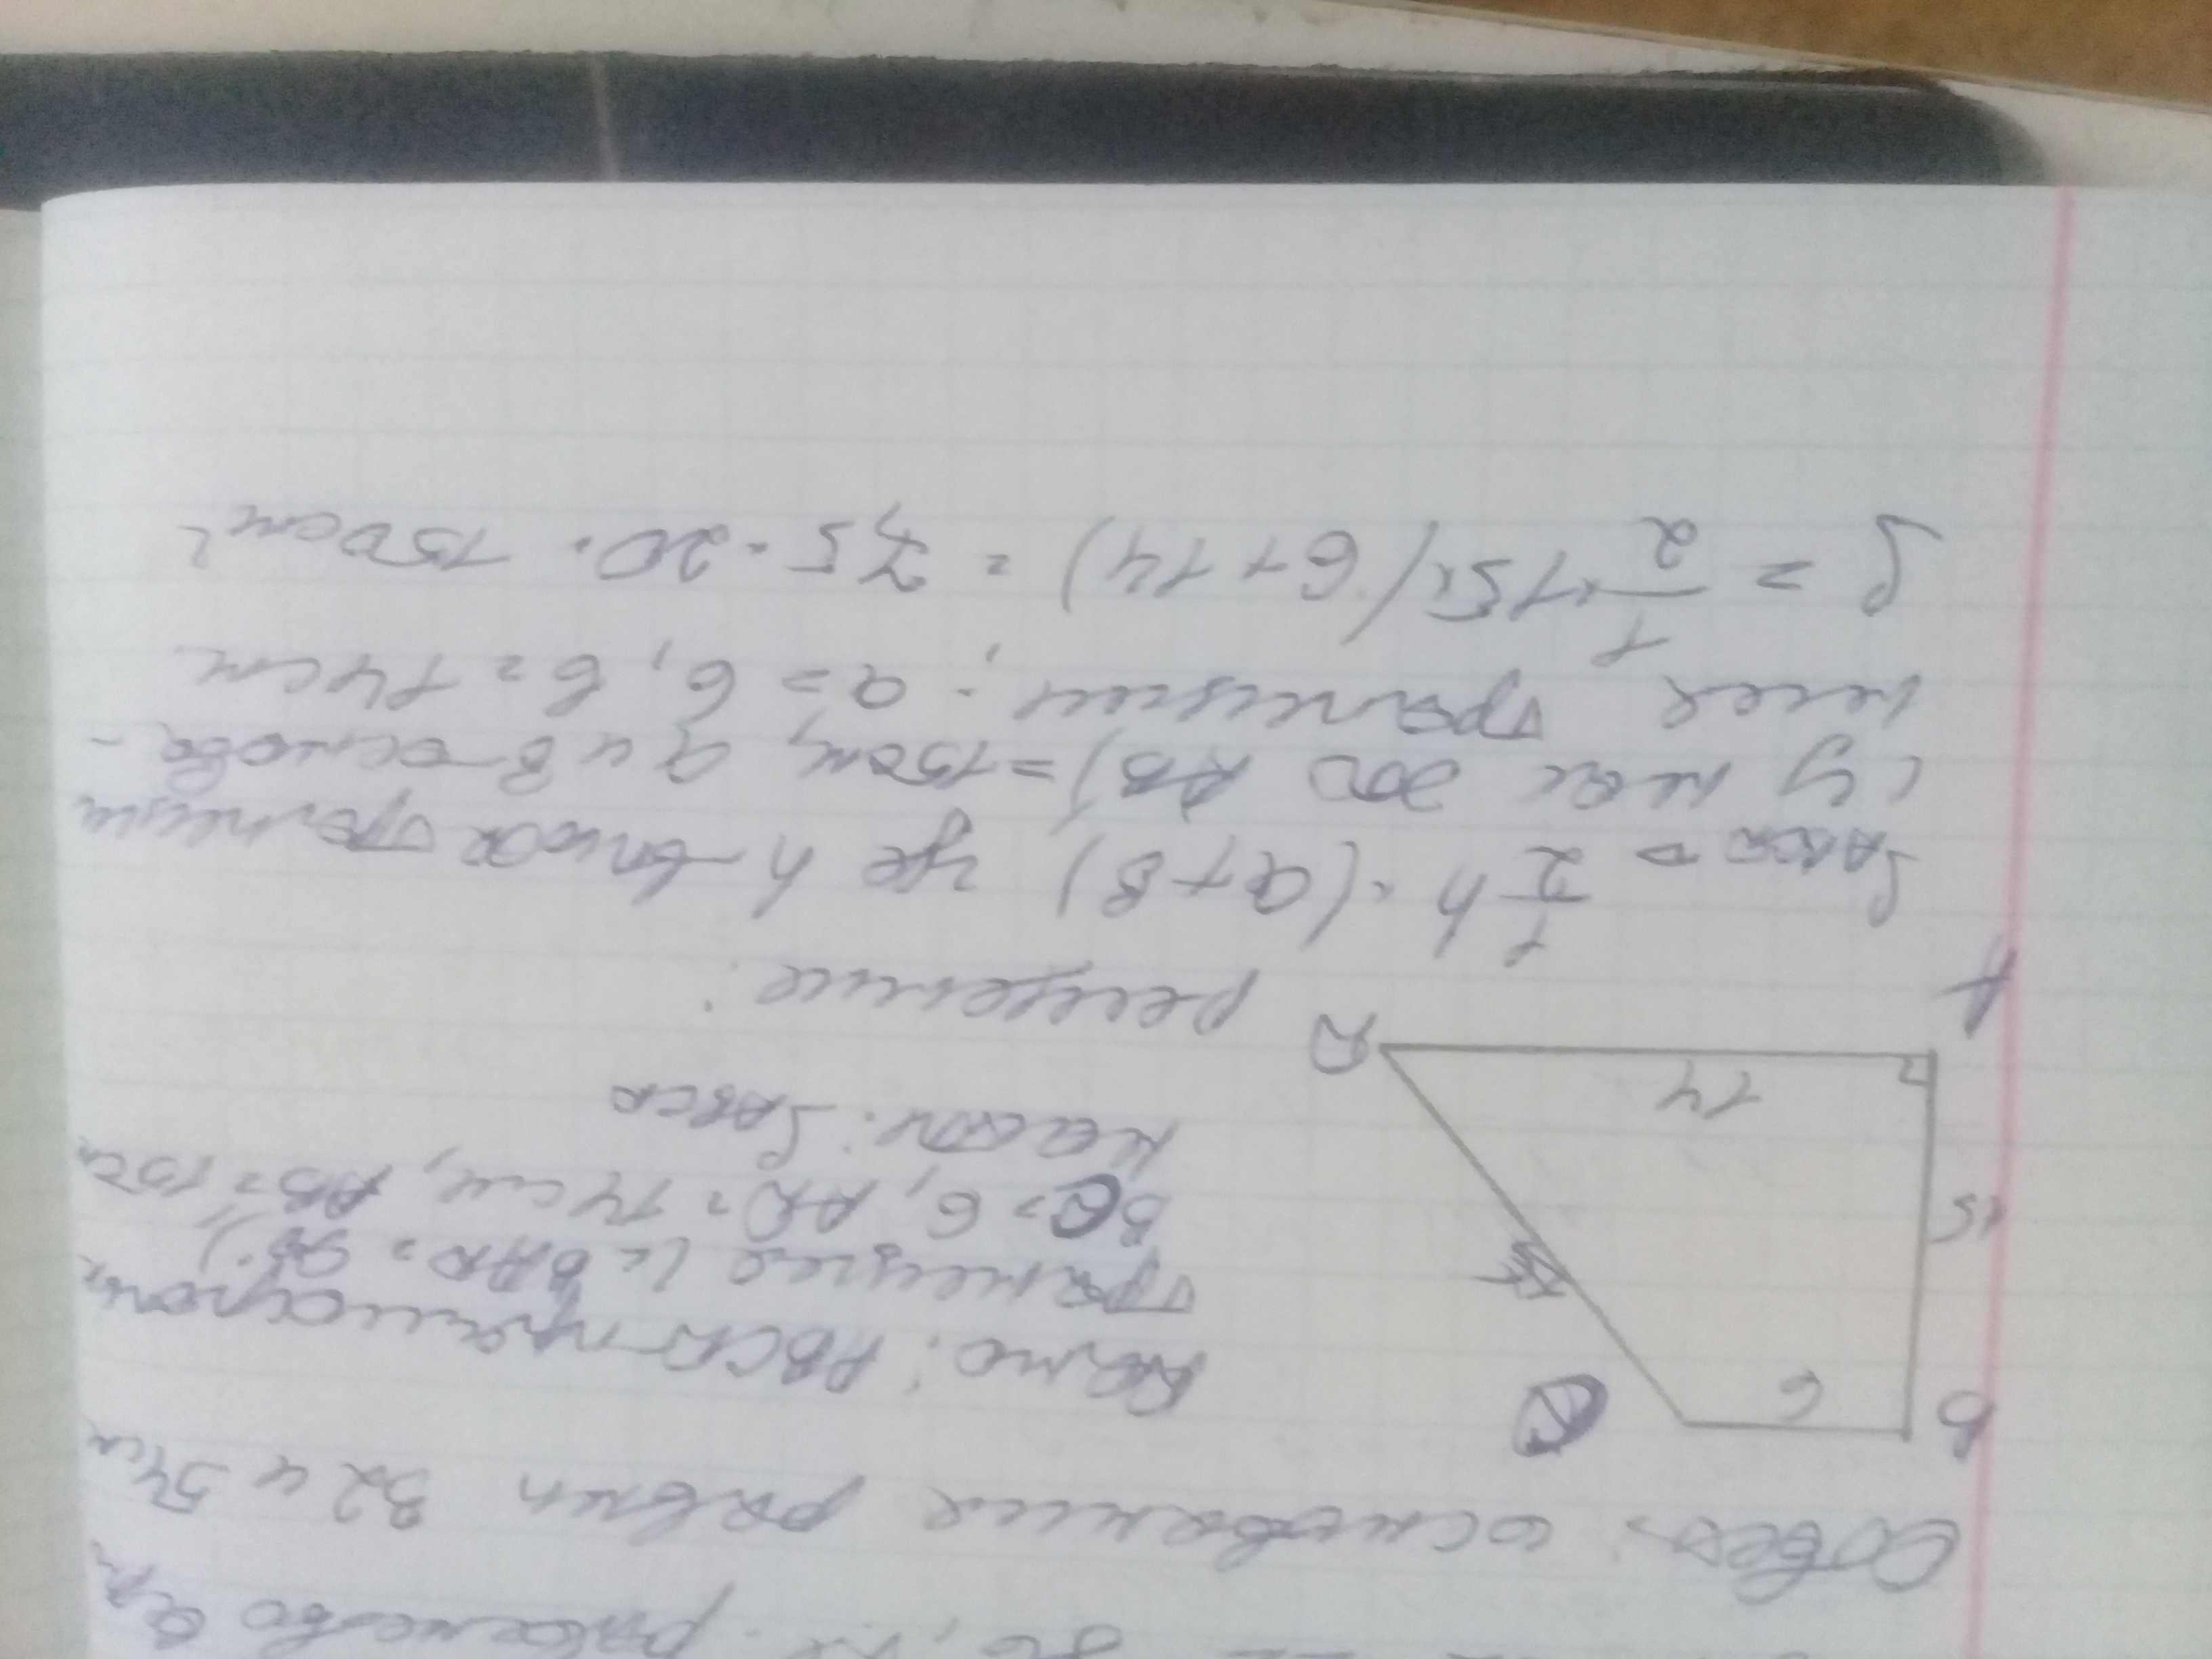 равенство
Ответ: основания равны 32 и 54см
B 6
Дано: ABCD прямоугольн.
трапеция (∠BAD = 90°),
BC = 6, AD = 14 см, AB = 15см
15
Найти: SABCD
14
A D
решение:
SABCD = 1/2 h · (a + в) где h - высота трапеции
(у нас это AB) = 15см, a и в - основа-
ния трапеции; a = 6, в = 14 см
S = 1/2 × 15 × (6 + 14) = 7,5 · 20 = 150 см²